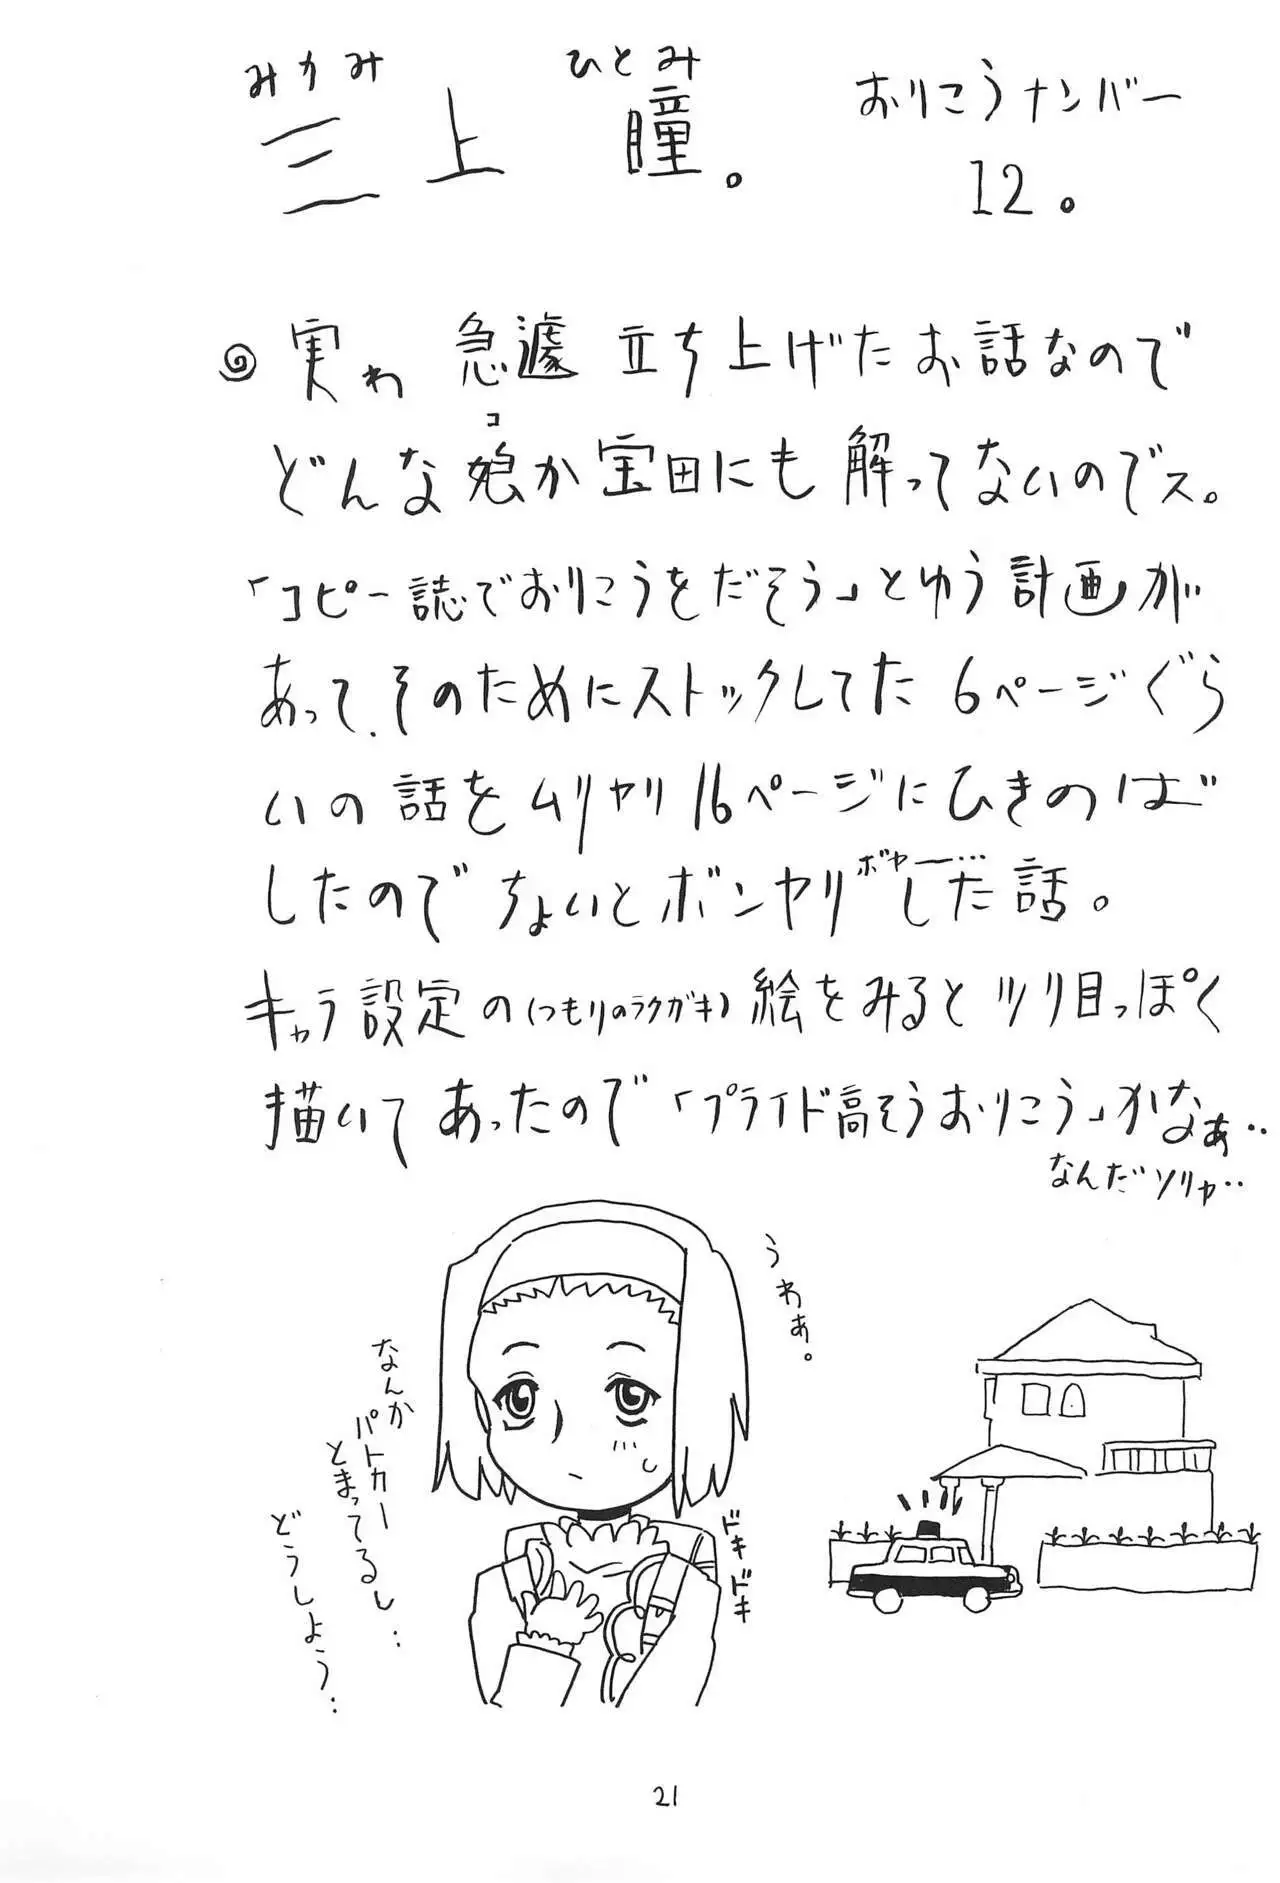 みかみ ひとみ
三上 瞳。
おりこうナンバー
12。
実わ 急遽 立ち上げたお話なので
コ
どんな娘か宝田にも解ってないのでス。
「コピー誌でおりこうをだそう」とゆう計画が
あって、そのためにストックしてた6ページぐら
いの話をムリヤリ16ページにひきのば
ボヤー…
したのでちょいとボンヤリした話。
キャラ設定の(つもりのラクガキ)絵をみるとツリ目っぽく
描いてあったので「プライド高そうおりこう」かなぁ‥
なんだソリャ‥
うわぁ。
なんか
パトカー
とまってるし…
どうしよう…
ドキドキ
21